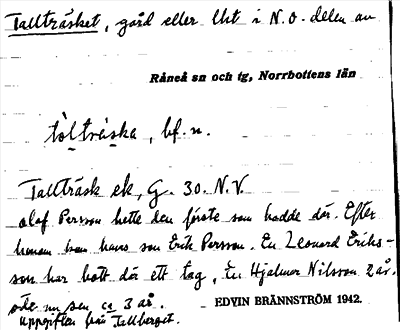 Tallträsket, gård eller lht i N.O. delen av
Råneå sn och tg, Norrbottens län
tòlträska, bf. n.
Tallträsk ek, G. 30. N.V.
Olof Persson hette den förste som hadde där. Efter
honom kom hans son Erik Persson. En Leonard Eriks-
son har bott där ett tag, En Hjalmar Nilsson 2 år.
öde nu sen ca 3 år.
Uppgiften från Tallberget.
EDVIN BRÄNNSTRÖM 1942.